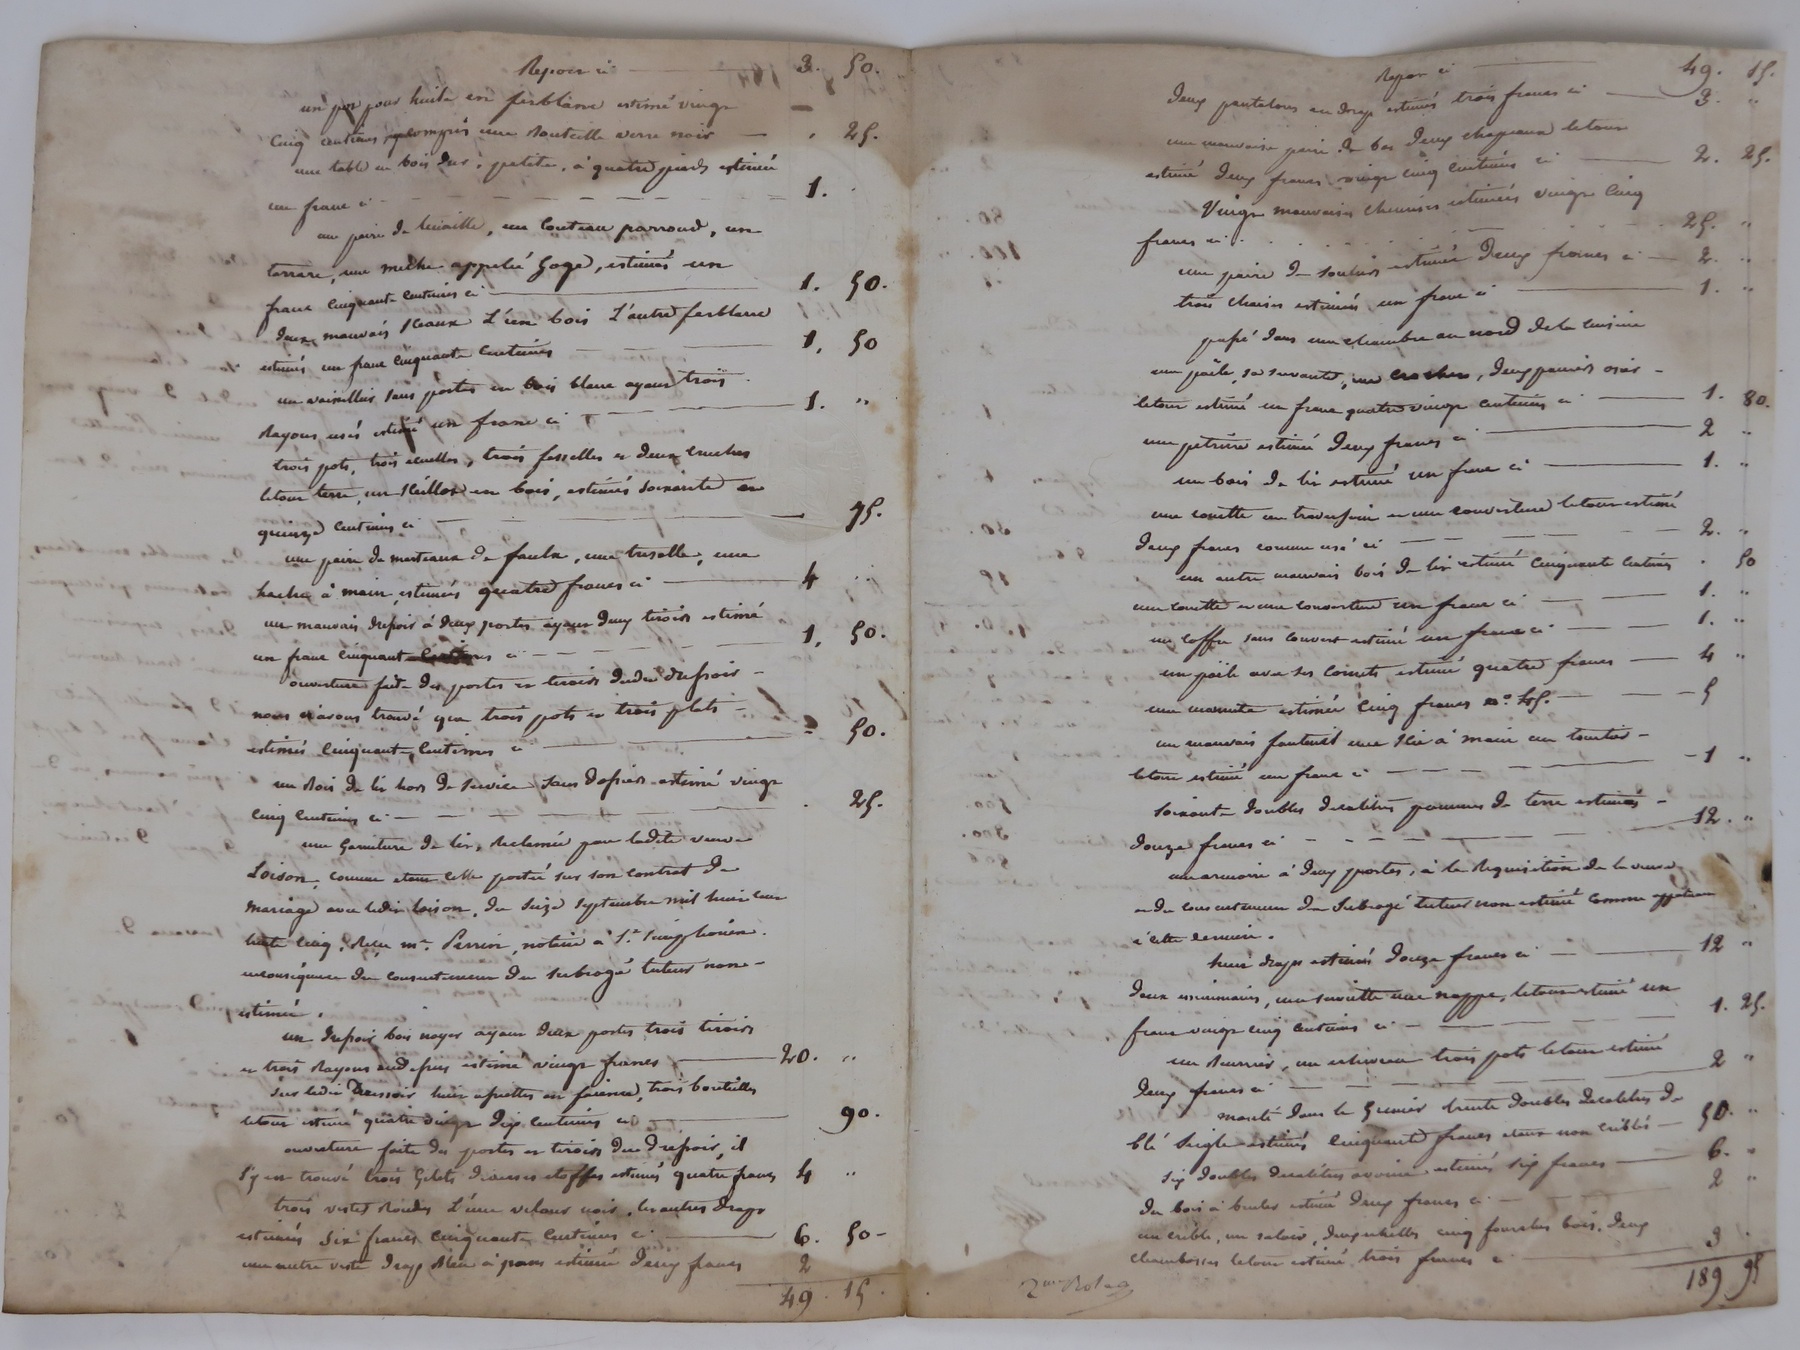 Report ci 3. 50.
un pot pour huile en ferblanc estimé vingt
cinq centimes, y compris une bouteille verre noir . 25.
une table en bois dur, petite, à quatre pieds estimée
un franc ci 1.
une paire de tenaille, un couteau parroud, un
tarrare, une meche appelée Goge, estimés un
franc cinquante centimes ci 1. 50.
deux mauvais seaux L'un bois L'autre ferblanc
estimés un franc cinquante centimes 1, 50
un vaisellier sans portes en bois blanc ayant trois
Rayons usés estimé un franc ci 1. "
trois pots, trois écuelles, trois fesselles et deux cruches
letout terre, un seillot en bois, estimés soixante et
quinze centimes ci 75.
une paire de marteaux de faulx, une truelle, une
hache à main, estimés quatre francs ci 4
un mauvais dressoir à deux portes ayant deux tiroirs estimé
un franc cinquante centimes ci 1, 50.
ouverture faite des portes et tiroirs dudit dressoir
nous n'avons trouvé que trois pots et trois plats
estimés cinquante centimes ci 50.
un bois de lit hors de service sans dossier estimé vingt
cinq centimes ci . 25.
une Garniture de lit, Reclamée par ladite veuve
Loison, comme étant celle portée sur son contrat de
mariage avec ledit Loison, du seize septembre mil huit cent
trente cinq, Reçu me. Perrin, notaire à St. Simphorien.
en conséquence du consentement du subrogé tuteur non
estimée.
un dressoir bois noyer ayant deux portes trois tiroirs
et trois Rayons au dessus estimé vingt francs 20. "
sur ledit Dressoir huit assiettes en faïence, trois bouteilles
letout estimé quatre vingt dix centimes ci 90.
ouverture faite des portes et tiroirs dudit dressoir, il
s'y est trouvé trois Gilets diverses étoffes estimés quatre francs 4 "
trois vestes Rondes L'une velours noir, les autres drap
estimées six francs cinquante centimes ci 6. 50
une autre veste drap bleu à pans estimée deux francs 2
49. 15.
Report ci 49. 15.
deux pantalons en drap estimés trois francs ci 3. "
une mauvaise paire de bas deux chapeaux letout
estimé deux francs vingt cinq centimes ci 2. 25.
Vingt mauvaises chemises estimées vingt cinq
francs ci 25. "
une paire de souliers estimée deux francs ci 2. "
trois chaises estimées un franc ci 1. "
passé dans une chambre au nord de la cuisine
une poêle, sa servante, deux paniers osier
letout estimé un franc quatre vingt centimes ci 1. 80.
une petrière estimée deux francs ci 2 "
un bois de lit estimé un franc ci 1. "
une couette un traversin et une couverture letout estimé
deux francs comme usé ci 2. "
un autre mauvais bois de lit estimé cinquante centimes . 50
une couette et une couverture un franc ci 1. "
un coffre sans couvert estimé un franc ci 1. "
un poële avec ses cornets estimé quatre francs 4 "
une marmite estimée cinq francs no. 45. 5
un mauvais fauteuil une scie à main un
letout estimé un franc ci 1 "
soixante doubles decalitres pommes de terre estimés
douze francs ci 12. "
une armoire à deux portes, à la Requisition de la veuve
et du consentement du subrogé tuteur non estimée comme appartenant
à cette derniere.
huit draps estimés douze francs ci 12 "
deux essuimains, une serviette une nappe, letout estimé un
franc vingt cinq centimes ci 1. 25.
un beurrier, un trois pots letout estimé
deux francs ci 2 "
monté dans le Grenier trente doubles decalitres de
blé seigle estimés cinquante francs étant non criblé 50. "
six doubles decalitres avoine estimés six francs 6. "
du bois à bruler estimé deux francs ci 2 "
un crible, un saloir, deux échelles cinq fourches bois, deux
letout estimé trois francs ci 3
189 95
2eme Role